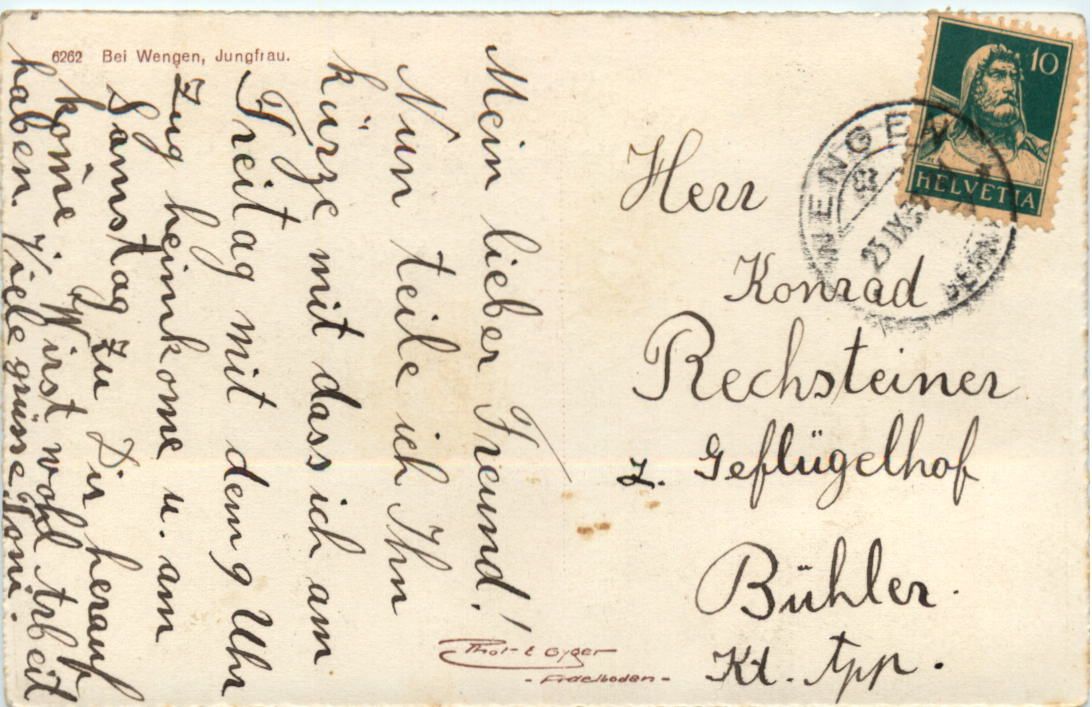 6262 Bei Wengen, Jungfrau.
Mein lieber Freund!
Nun teile ich Ihm
kürze mit dass ich am
Freitag mit dem 9 Uhr
Zug heimkom̄e u. am
Samstag zu Dir herauf
kom̄e. Wirst wohl Arbeit
haben. Viele grüsse, Toni.
10
HELVETIA
WENGEN
23 IX
BERN
Herr
Konrad
Rechsteiner
z. Geflügelhof
Bühler.
Kt. App.
Phot. E Gyger
- Adelboden -